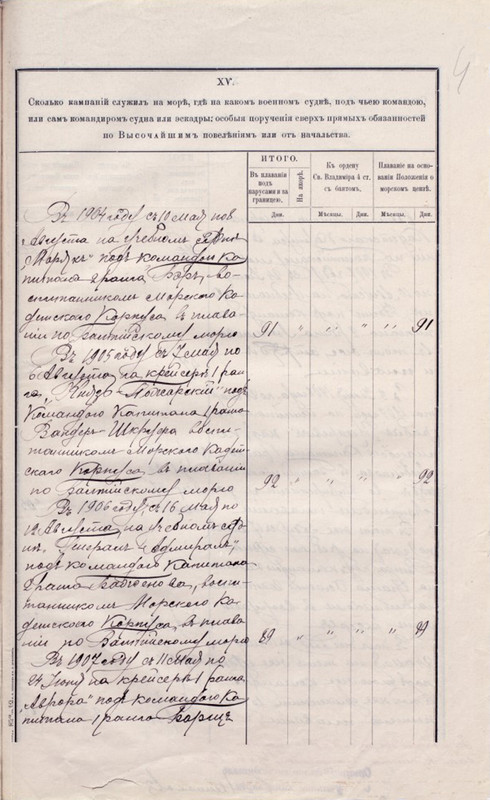 4
XV.
Сколько кампаній служилъ на морѣ, гдѣ на какомъ военномъ суднѣ, подъ чьею командою,
или самъ командиромъ судна или эскадры; особыя порученія сверхъ прямыхъ обязанностей
по Высочайшимъ повелѣніямъ или отъ начальства.
ИТОГО.
Въ плаваніи подъ парусами и за границею.
На якорѣ.
Къ ордену Св. Владиміра 4 ст. съ бантомъ.
Плаваніе на основаніи Положенія о морскомъ цензѣ.
Дни. Мѣсяцы. Дни. Мѣсяцы. Дни.
Въ 1904 году съ 10 Мая по
Августа на учебномъ суднѣ
„Морякъ" подъ командою Ка
питана 2 ранга Бэръ, во-
спитанникомъ Морского Ка
детскаго Корпуса, въ плава
ніи по Балтійскому морю 91 " " " " 91
Въ 1905 году съ 7 Мая по
6 Августа на крейсерѣ 1 ран
га „Князь Пожарскій" подъ
Командою Капитана 1 ранга
Вандеръ-Шкруфа воспи-
танникомъ Морского Кадет-
скаго Корпуса въ плаваніи
по Балтійскому морю 92 " " " " 92
Въ 1906 году съ 16 Мая по
12 Августа на учебномъ суд
нѣ „Генералъ Адмиралъ",
подъ командою Капитана
2 ранга воспи-
танникомъ Морского Ка
детскаго Корпуса, въ плава
ніи по Балтійскому морю 89 " " " " 89
Въ 1907 году съ 11 Мая по
24 Іюня на крейсерѣ 1 ранга
„Аврора" подъ командою Ка
питана 1 ранга Барщъ